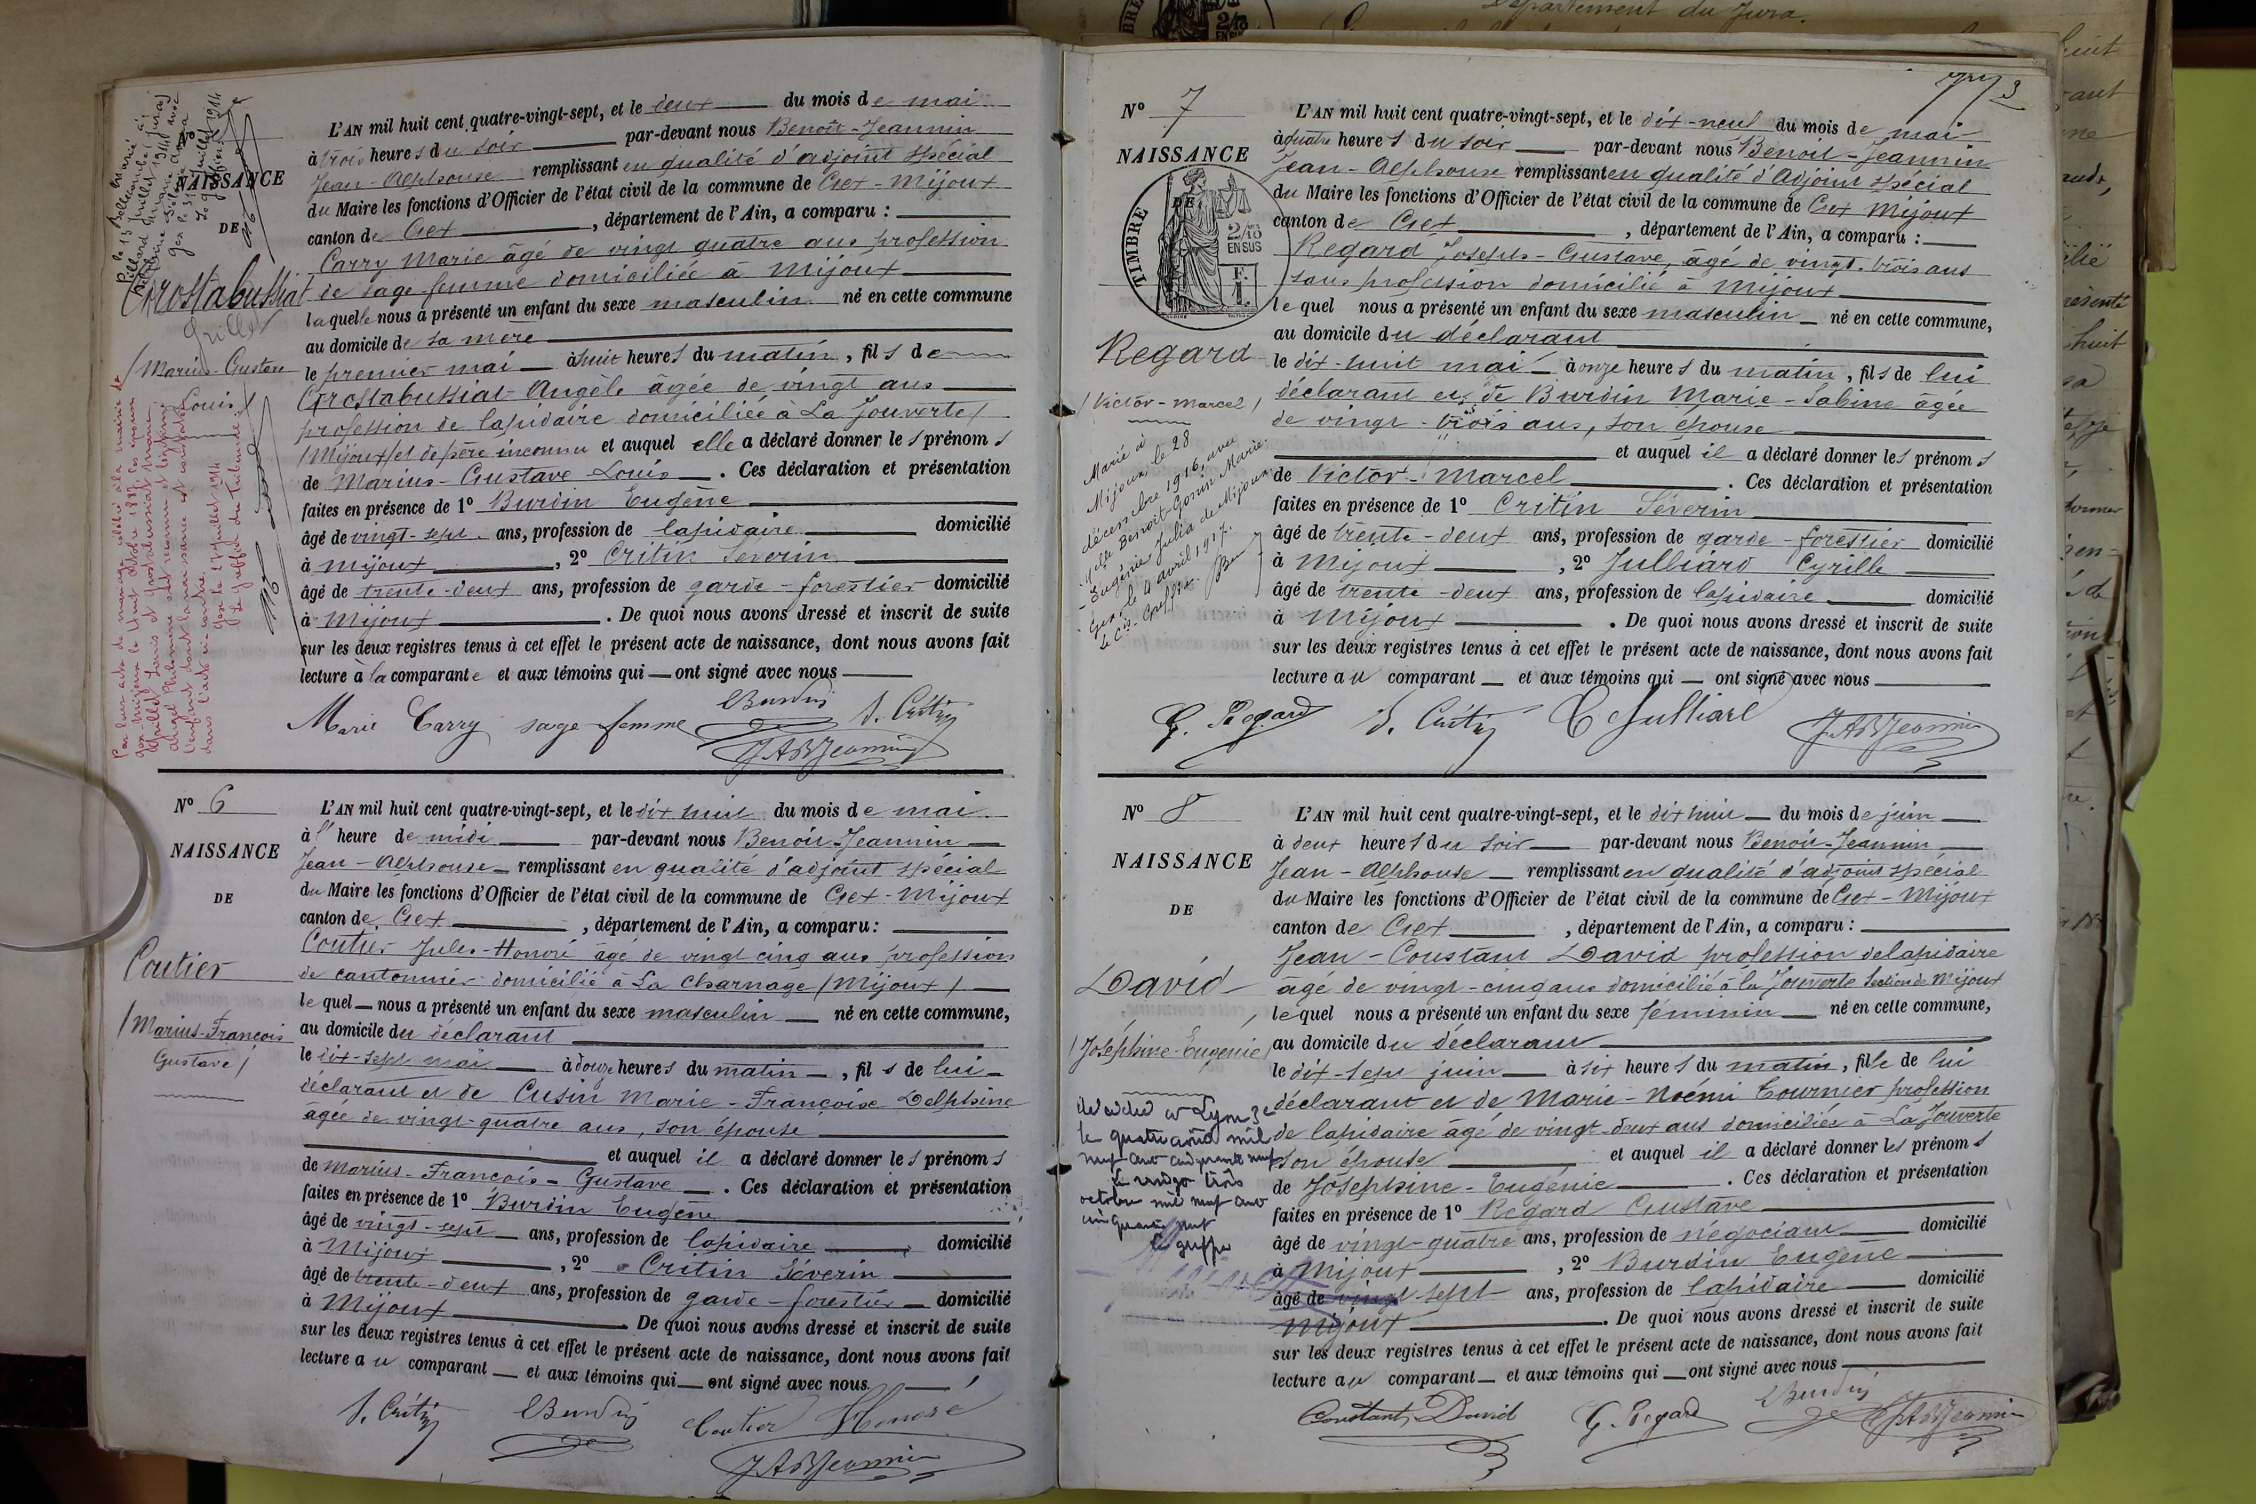 NAISSANCE
DE
Grostabussiat
Grillet
/ Marius-Gustave
Louis /
L'AN mil huit cent quatre-vingt-sept, et le deux du mois de mai
à trois heures du soir par-devant nous Benoît-Jeannin
Jean-Alphonse remplissant en qualité d'adjoint spécial
du Maire les fonctions d'Officier de l'état civil de la commune de Gex-Mijoux
canton de Gex, département de l'Ain, a comparu :
Carry Marie âgé de vingt quatre ans profession
de sage femme domiciliée à Mijoux
laquelle nous a présenté un enfant du sexe masculin né en cette commune
au domicile de sa mère
le premier mai à huit heures du matin, fils de
Grostabussiat Angèle âgée de vingt ans
profession de lapidaire domiciliée à La Jouverte /
/Mijoux/ et de père inconnu et auquel elle a déclaré donner les prénoms
de Marius-Gustave-Louis. Ces déclaration et présentation
faites en présence de 1º Burdin Eugène
âgé de vingt-sept ans, profession de lapidaire domicilié
à Mijoux, 2º Critin Séverin
âgé de trente-deux ans, profession de garde-forestier domicilié
à Mijoux. De quoi nous avons dressé et inscrit de suite
sur les deux registres tenus à cet effet le présent acte de naissance, dont nous avons fait
lecture à la comparante et aux témoins qui ont signé avec nous
Marie Carry sage femme EBurdin S. Critin
JABJeannin
Nº 6
NAISSANCE
DE
Coutier
/ Marius-François
Gustave /
L'AN mil huit cent quatre-vingt-sept, et le dix huit du mois de mai
à l'heure de midi par-devant nous Benoît-Jeannin
Jean-Alphonse remplissant en qualité d'adjoint spécial
du Maire les fonctions d'Officier de l'état civil de la commune de Gex-Mijoux
canton de Gex, département de l'Ain, a comparu :
Coutier Jules-Honoré âgé de vingt cinq ans profession
de cantonnier domicilié à La Charnage /Mijoux/
lequel nous a présenté un enfant du sexe masculin né en cette commune,
au domicile du déclarant
le dix-sept mai à douze heures du matin, fils de lui
déclarant et de Cusin Marie-Françoise Delphine
âgée de vingt-quatre ans, son épouse
et auquel il a déclaré donner les prénoms
de Marius-François-Gustave. Ces déclaration et présentation
faites en présence de 1º Burdin Eugène
âgé de vingt-sept ans, profession de lapidaire domicilié
à Mijoux, 2º Critin Séverin
âgé de trente-deux ans, profession de garde-forestier domicilié
à Mijoux. De quoi nous avons dressé et inscrit de suite
sur les deux registres tenus à cet effet le présent acte de naissance, dont nous avons fait
lecture au comparant et aux témoins qui ont signé avec nous.
S. Critin EBurdin Coutier Honoré
JABJeannin
3
Nº 7
NAISSANCE
DE
TIMBRE
2/10
EN SUS
Regard
/ Victor-Marcel /
Marié à
Mijoux le 28
décembre 1916, avec
Melle Benoit-Gonin Marie
Eugénie Julia de Mijoux
Gex le 4 avril 1917.
Le Cis-Greffier
L'AN mil huit cent quatre-vingt-sept, et le dix-neuf du mois de mai
à quatre heures du soir par-devant nous Benoit-Jeannin
Jean-Alphonse remplissant en qualité d'Adjoint spécial
du Maire les fonctions d'Officier de l'état civil de la commune de Gex Mijoux
canton de Gex, département de l'Ain, a comparu :
Regard Joseph-Gustave, âgé de vingt-trois ans
sans profession domicilié à Mijoux
lequel nous a présenté un enfant du sexe masculin né en cette commune,
au domicile du déclarant
le dix-huit mai à onze heures du matin, fils de lui
déclarant et de Burdin Marie-Sabine âgée
de vingt-trois ans, son épouse
et auquel il a déclaré donner les prénoms
de Victor-Marcel. Ces déclaration et présentation
faites en présence de 1º Critin Séverin
âgé de trente-deux ans, profession de garde-forestier domicilié
à Mijoux, 2º Julliard Cyrille
âgé de trente-deux ans, profession de lapidaire domicilié
à Mijoux. De quoi nous avons dressé et inscrit de suite
sur les deux registres tenus à cet effet le présent acte de naissance, dont nous avons fait
lecture au comparant et aux témoins qui ont signé avec nous
G. Regard S. Critin C Julliard JABJeannin
Nº 8
NAISSANCE
DE
David
/ Joséphine-Eugénie /
décédée à Lyon 3e
le quatre août mil
neuf cent cinquante neuf
Le vingt trois
octobre mil neuf cent
cinquante neuf
Le greffier
L'AN mil huit cent quatre-vingt-sept, et le dix huit du mois de juin
à deux heures du soir par-devant nous Benoit-Jeannin
Jean-Alphonse remplissant en qualité d'adjoint spécial
du Maire les fonctions d'Officier de l'état civil de la commune de Gex-Mijoux
canton de Gex, département de l'Ain, a comparu :
Jean-Constant David profession de lapidaire
âgé de vingt-cinq ans domicilié à la Jouverte Section de Mijoux
lequel nous a présenté un enfant du sexe féminin né en cette commune,
au domicile du déclarant
le dix-sept juin à six heures du matin, fille de lui
déclarant et de Marie-Noémi Tournier profession
de lapidaire âgé de vingt-deux ans domiciliée à La Jouverte
son épouse et auquel il a déclaré donner les prénoms
de Joséphine-Eugénie. Ces déclaration et présentation
faites en présence de 1º Regard Gustave
âgé de vingt-quatre ans, profession de négociant domicilié
à Mijoux, 2º Burdin Eugène
âgé de vingt-sept ans, profession de lapidaire domicilié
Mijoux. De quoi nous avons dressé et inscrit de suite
sur les deux registres tenus à cet effet le présent acte de naissance, dont nous avons fait
lecture au comparant et aux témoins qui ont signé avec nous
Constant David G. Regard EBurdin JABJeannin